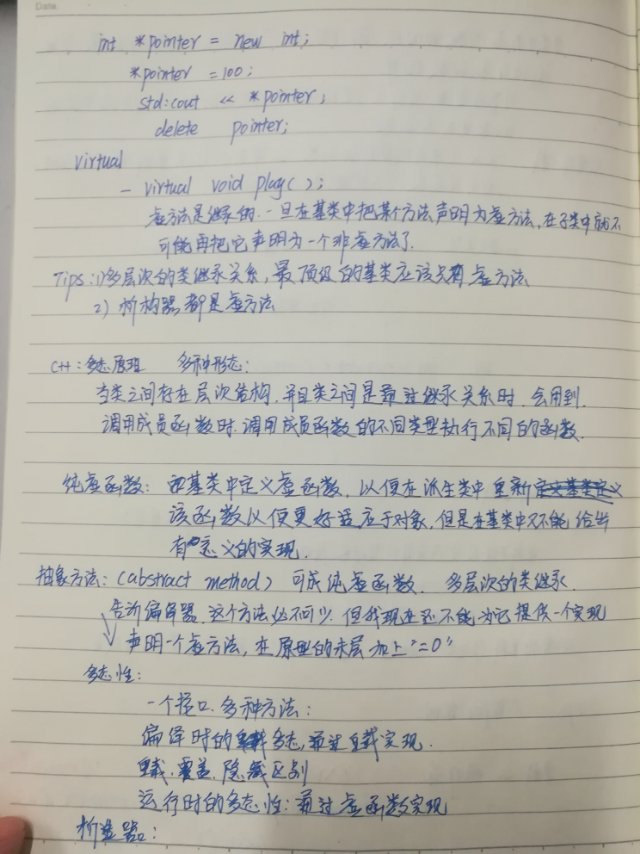 Date.
int *pointer = new int;
*pointer = 100;
std:cout << *pointer;
delete pointer;
virtual
- virtual void play();
虚方法是继承的.一旦在基类中把某个方法声明为虚方法,在子类中就不
可能再把它声明为一个非虚方法了.
Tips:1)多层次的类继承关系,最顶级的基类应该只有虚方法
2)析构器都是虚方法
C++:多态原理 多种形态:
当类之间存在层次结构,并且类之间是通过继承关系时,会用到.
调用成员函数时,调用成员函数的不同类型执行不同的函数.
纯虚函数: 在基类中定义虚函数,以便在派生类中重新定义
该函数以便更好适应于对象,但是在基类中又不能给出
有意义的实现.
抽象方法:(abstract method) 可成纯虚函数. 多层次的类继承.
告诉编译器,这个方法必不可少.但我现在还不能为它提供一个实现
声明一个虚方法,在原型的末尾加上"=0"
多态性:
一个接口,多种方法:
编译时的多态,通过重载实现.
重载,覆盖,隐藏区别
运行时的多态性:通过虚函数实现
析造器: